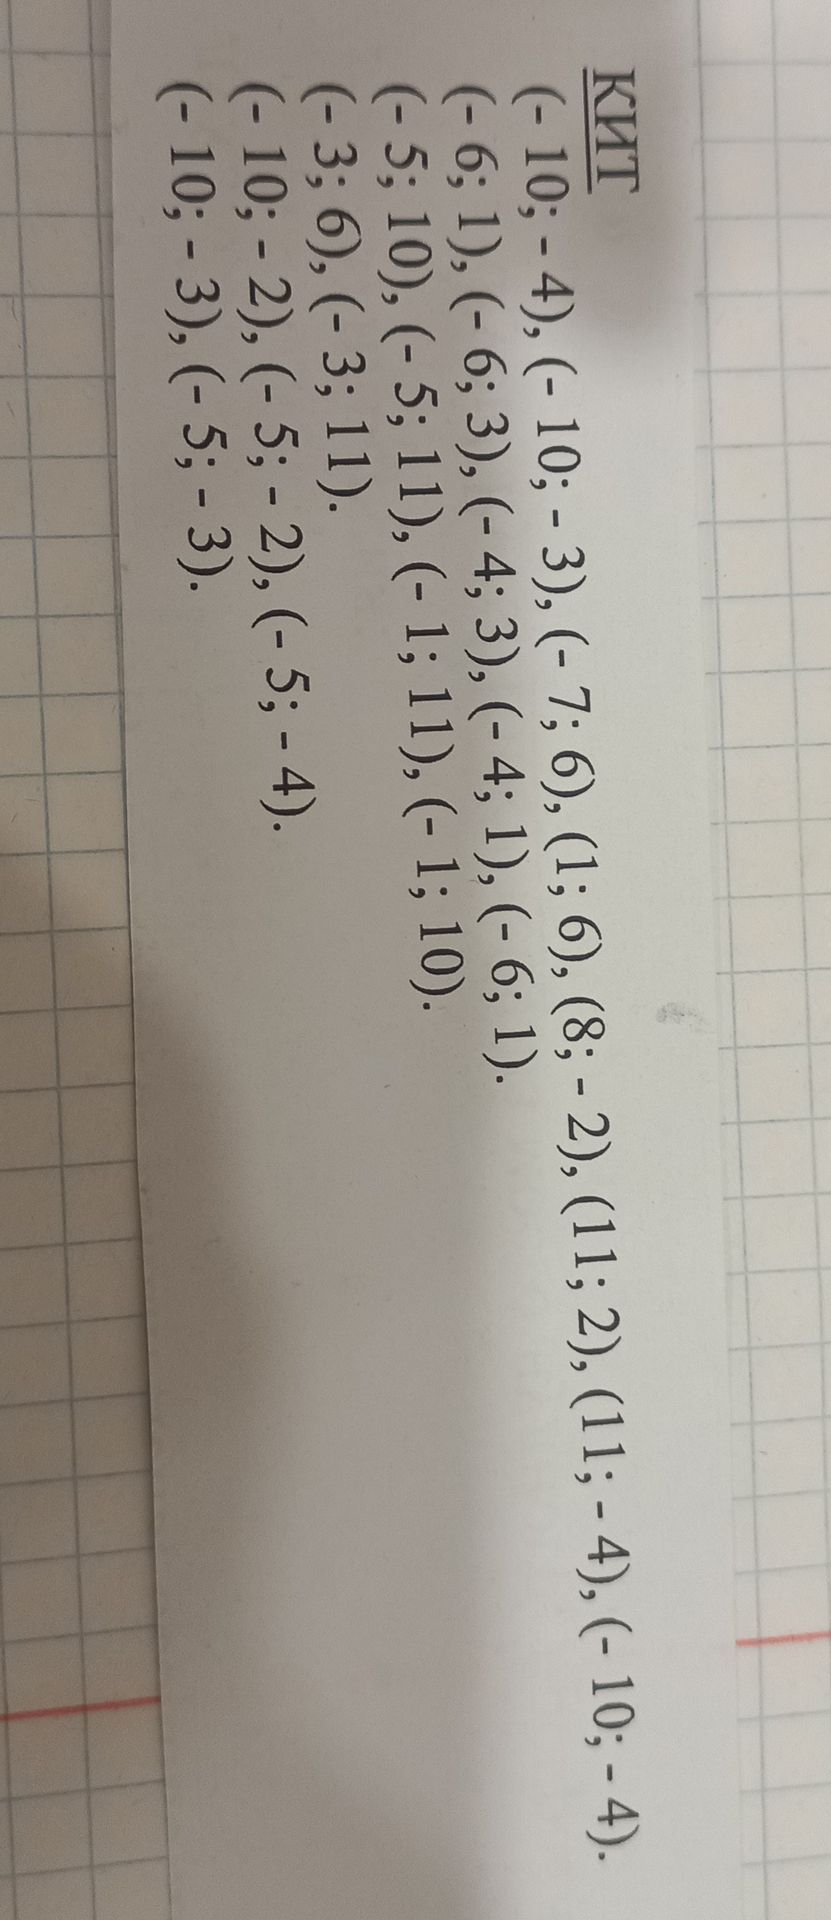 КИТ
(- 10; - 4), (- 10; - 3), (- 7; 6), (1; 6), (8; - 2), (11; 2), (11; - 4), (- 10; - 4).
(- 6; 1), (- 6; 3), (- 4; 3), (- 4; 1), (- 6; 1).
(- 5; 10), (- 5; 11), (- 1; 11), (- 1; 10).
(- 3; 6), (- 3; 11).
(- 10; - 2), (- 5; - 2), (- 5; - 4).
(- 10; - 3), (- 5; - 3).